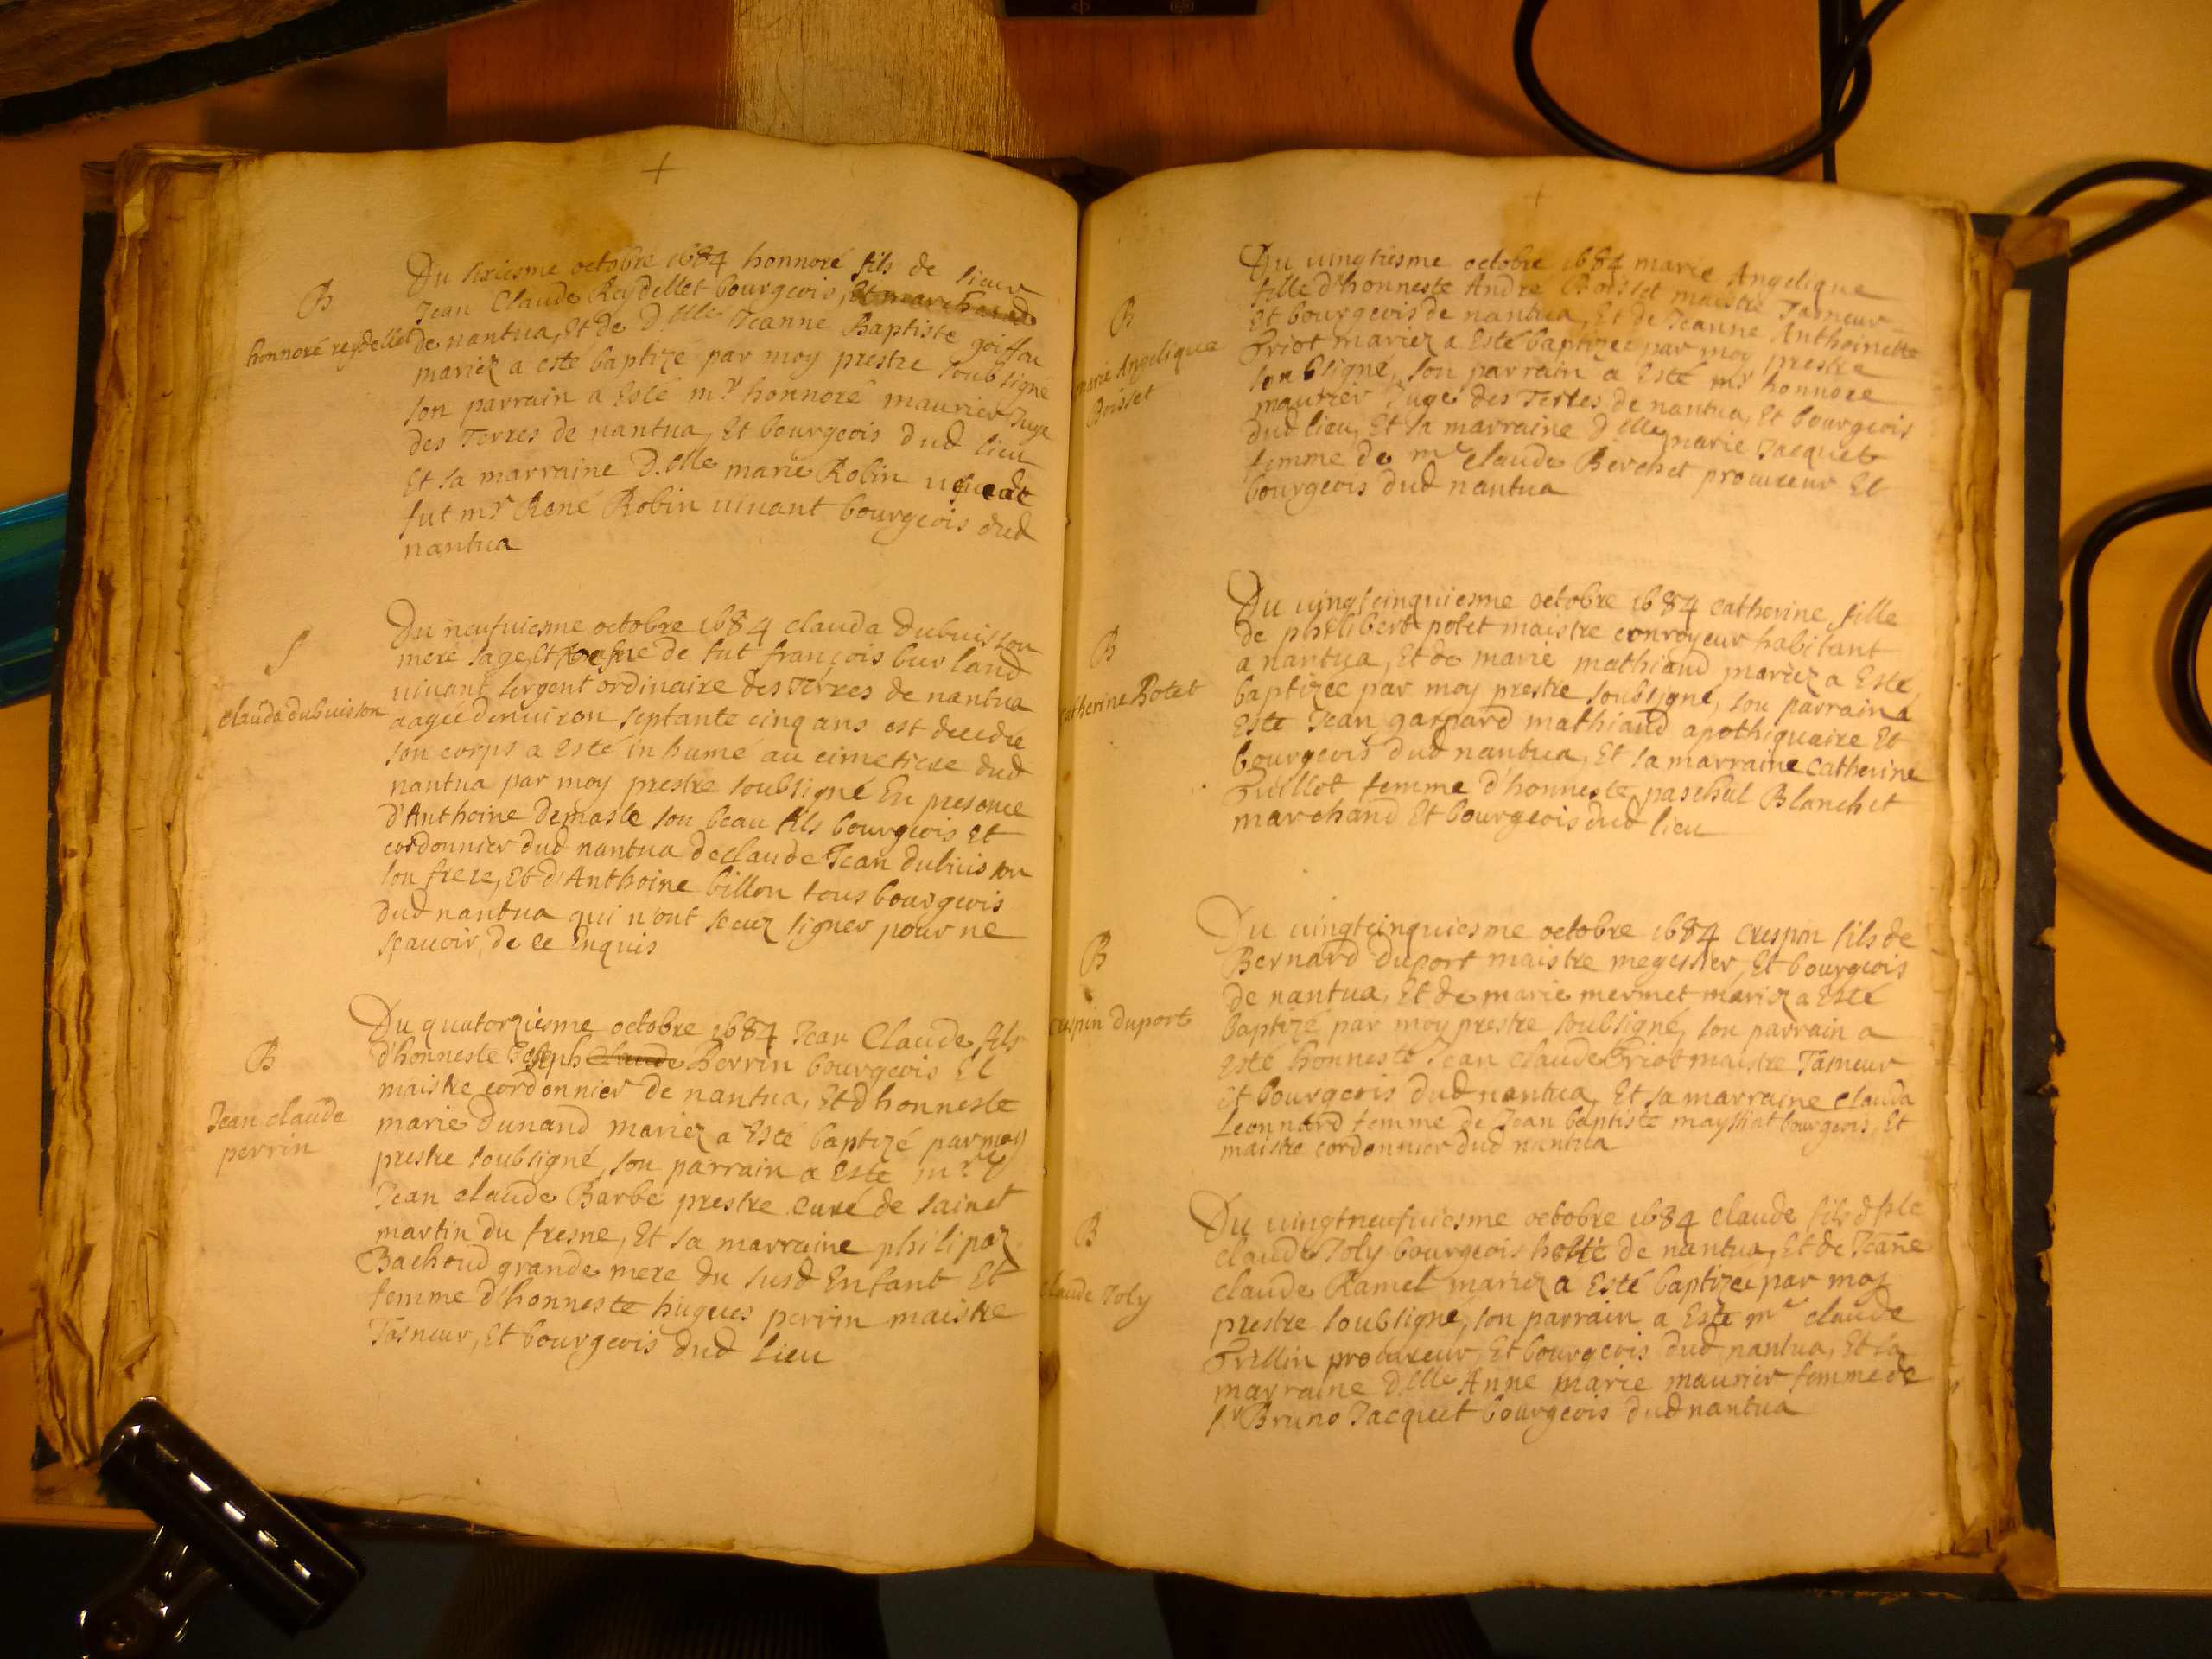 B
honnoré reydellet
Du sixiesme octobre 1684 honnoré fils de sieur
Jean Claude Reydellet bourgeois, et marchand
de nantua, Et de D.lle Jeanne Baptiste goiffon
mariez a esté baptizé par moy prestre soubsigné
son parrain a Esté mr honnoré maurier Juge
des Terres de nantua, Et bourgeois dud lieu
Et sa marraine D.elle marie Robin de
fut mr René Robin vivant bourgeois dud
nantua
S
clauda dubuisson
Du neufviesme octobre 1684 clauda Dubuisson
mere sage, Et de fut françois burland
vivant sergent ordinaire des Terres de nantua
aagée denviron septante cinq ans est decedée
son corps a Esté inhumé au cimetiere dud
nantua par moy prestre soubsigné En presence
d'Anthoine Demasle son beau fils bourgeois Et
cordonnier dud nantua de claude Jean dubuisson
son frere, Et d'Anthoine billon tous bourgeois
dud nantua qui n'ont sceuz signer pour ne
sçavoir, de ce Enquis
B
Jean claude
perrin
Du quatorziesme octobre 1684 Jean Claude fils
d'honneste Joseph Claude Perrin bourgeois Et
maistre cordonnier de nantua, Et d'honneste
marie Dunand mariez a Esté baptizé par moy
prestre soubsigné, son parrain a Esté mre
Jean claude Barbe prestre curé de sainct
martin du fresne, Et sa marraine philipaz
Bachoud grande mere du susd Enfant Et
femme d'honneste hugues perrin maistre
Tasneur, Et bourgeois dud lieu
B
marie Angelique
Boisset
Du vingtiesme octobre 1684 marie Angelique
fille d'honneste André Boisset maistre Tasneur
Et bourgeois de nantua, Et de Jeanne Anthoinette
Priot mariez a Esté baptizée par moy prestre
soubsigné, son parrain a Esté mr honnoré
maurier Juge des Terres de nantua, Et bourgeois
dud lieu, Et sa marraine d elle marie Jacquet
femme de me claude Berchet procureur Et
bourgeois dud nantua
B
catherine Potet
Du vingtcinquiesme octobre 1684 catherine fille
de philibert potet maistre conroyeur habitant
a nantua, Et de marie mathiand mariez a Esté
baptizée par moy prestre soubsigné, son parrain a
Esté Jean gaspard mathiand apothiquaire Et
bourgeois dud nantua, Et sa marraine catherine
femme d'honneste paschal Blanchet
marchand Et bourgeois dud lieu
B
crespin duport
Du vingtcinquiesme octobre 1684 crespin fils de
Bernard duport maistre megessier, Et bourgeois
de nantua, Et de marie mermet mariez a Esté
baptizé par moy prestre soubsigné, son parrain a
esté honneste Jean claude Priot maistre Tasneur
Et bourgeois dud nantua, Et sa marraine clauda
Leonnard femme de Jean baptiste mayssiat bourgeois, Et
maistre cordonnier dud nantua
B
claude Joly
Du vingtneufviesme octobre 1684 claude fils
claude Joly bourgeois de nantua, Et de Jeane
claude Ramel mariez a Esté baptizée par moy
prestre soubsigné, son parrain a Esté me claude
procureur, Et bourgeois dud nantua, Et sa
marraine D.elle Anne marie maurier femme de
sr Bruno Jacquet bourgeois dud nantua